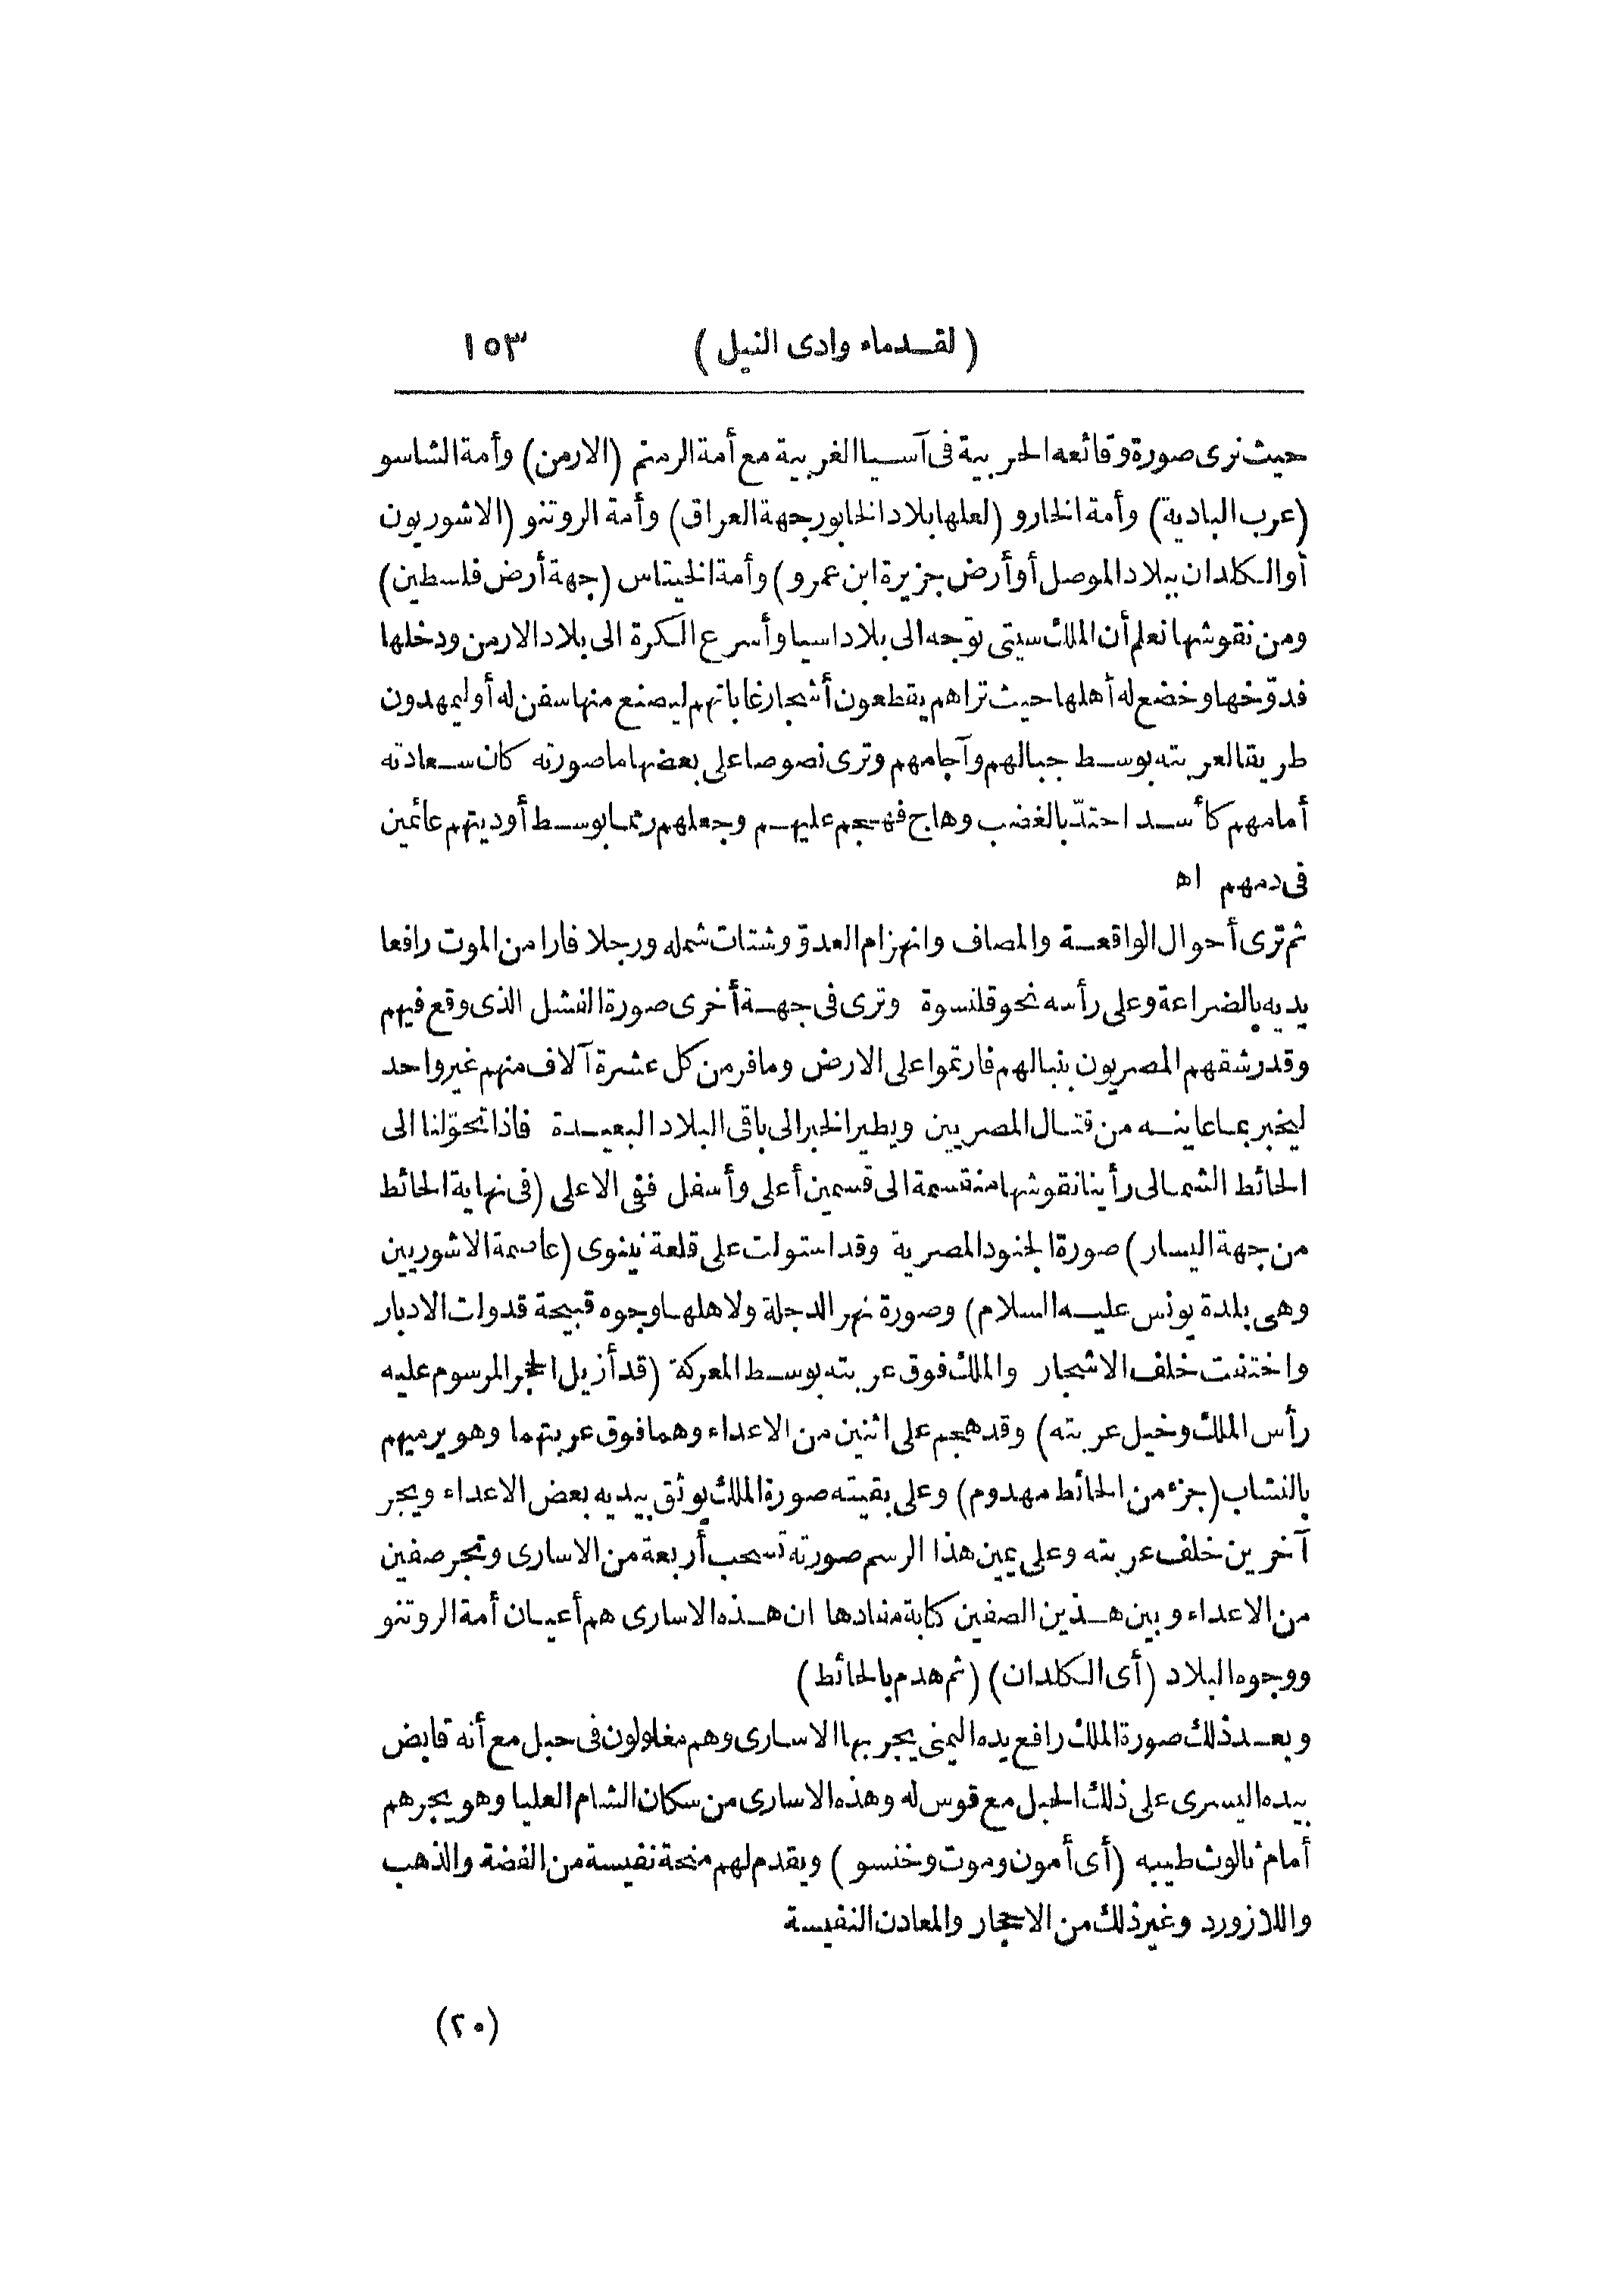 (لقدماء وادى النيل) ١٥٣
حيث نرى صورة وقائعه الحربية فى آسيا الغربية مع أمة الرمنم (الارمن) وأمة الشاسو
(عرب البادية) وأمة الخارو (لعلها بلاد الخابور جهة العراق) وأمة الروتنو (الاشوريون
أو الكلدان ببلاد الموصل أو أرض جزيرة ابن عمرو) وأمة الخيتاس (جهة أرض فلسطين)
ومن نقوشها نعلم أن الملك سيتى توّجه الى بلاد اسيا وأسرع الكرة الى بلاد الارمن ودخلها
فدوّخها وخضع له أهلها حيث تراهم يقطعون أشجار غاباتهم ليصنع منها سفن له أو ليمهدون
طريقا لعربته بوسط جبالهم وآجامهم وترى نصوصا على بعضها ما صورته كان سعادته
أمامهم كأسد احتدّ بالغضب وهاج فهجم عليهم وجعلهم رمما بوسط أوديتهم عائمين
فى دمهم اه
ثم ترى أحوال الواقعة والمصاف وانهزام العدوّ وشتات شمله ورجلا فارا من الموت رافعا
يديه بالضراعة وعلى رأسه نحو قلنسوة وترى فى جهة أخرى صورة الفشل الذى وقع فيهم
وقد رشقهم المصريون بنبالهم فارتموا على الارض وما فر من كل عشرة آلاف منهم غير واحد
ليخبر بما عاينه من قتال المصريين ويطير الخبر الى باقى البلاد البعيدة فاذا تحوّلنا الى
الحائط الشمالى رأينا نقوشها منقسمة الى قسمين أعلى وأسفل ففى الاعلى (فى نهاية الحائط
من جهة اليسار) صورة الجنود المصرية وقد استولت على قلعة نينوى (عاصمة الاشوريين
وهى بلدة يونس عليه السلام) وصورة نهر الدجلة ولاهلها وجوه قبيحة قد ولت الادبار
واختفت خلف الاشجار والملك فوق عربته بوسط المعركة (قد أزيل الحجر المرسوم عليه
رأس الملك وخيل عربته) وقد هجم على اثنين من الاعداء وهما فوق عربتهما وهو يرميهم
بالنشاب (جزء من الحائط مهدوم) وعلى بقيته صورة الملك يوثق بيديه بعض الاعداء ويجر
آخرين خلف عربته وعلى يمين هذا الرسم صورته تسحب أربعة من الاسارى وتجر صفين
من الاعداء وبين هذين الصفين كتابة مفادها ان هذه الاسارى هم أعيان أمة الروتنو
ووجوه البلاد (أى الكلدان) (ثم هدم بالحائط)
وبعد ذلك صورة الملك رافع يده اليمنى يجر بها الاسارى وهم مغلولون فى حبل مع أنه قابض
بيده اليسرى على ذلك الحبل مع قوس له وهذه الاسارى من سكان الشام العليا وهو يجرهم
أمام ثالوث طيبه (أى أمون وموت وخنسو) ويقدم لهم منحة نفيسة من الفضة والذهب
واللازورد وغير ذلك من الاحجار والمعادن النفيسة
(٢٠)